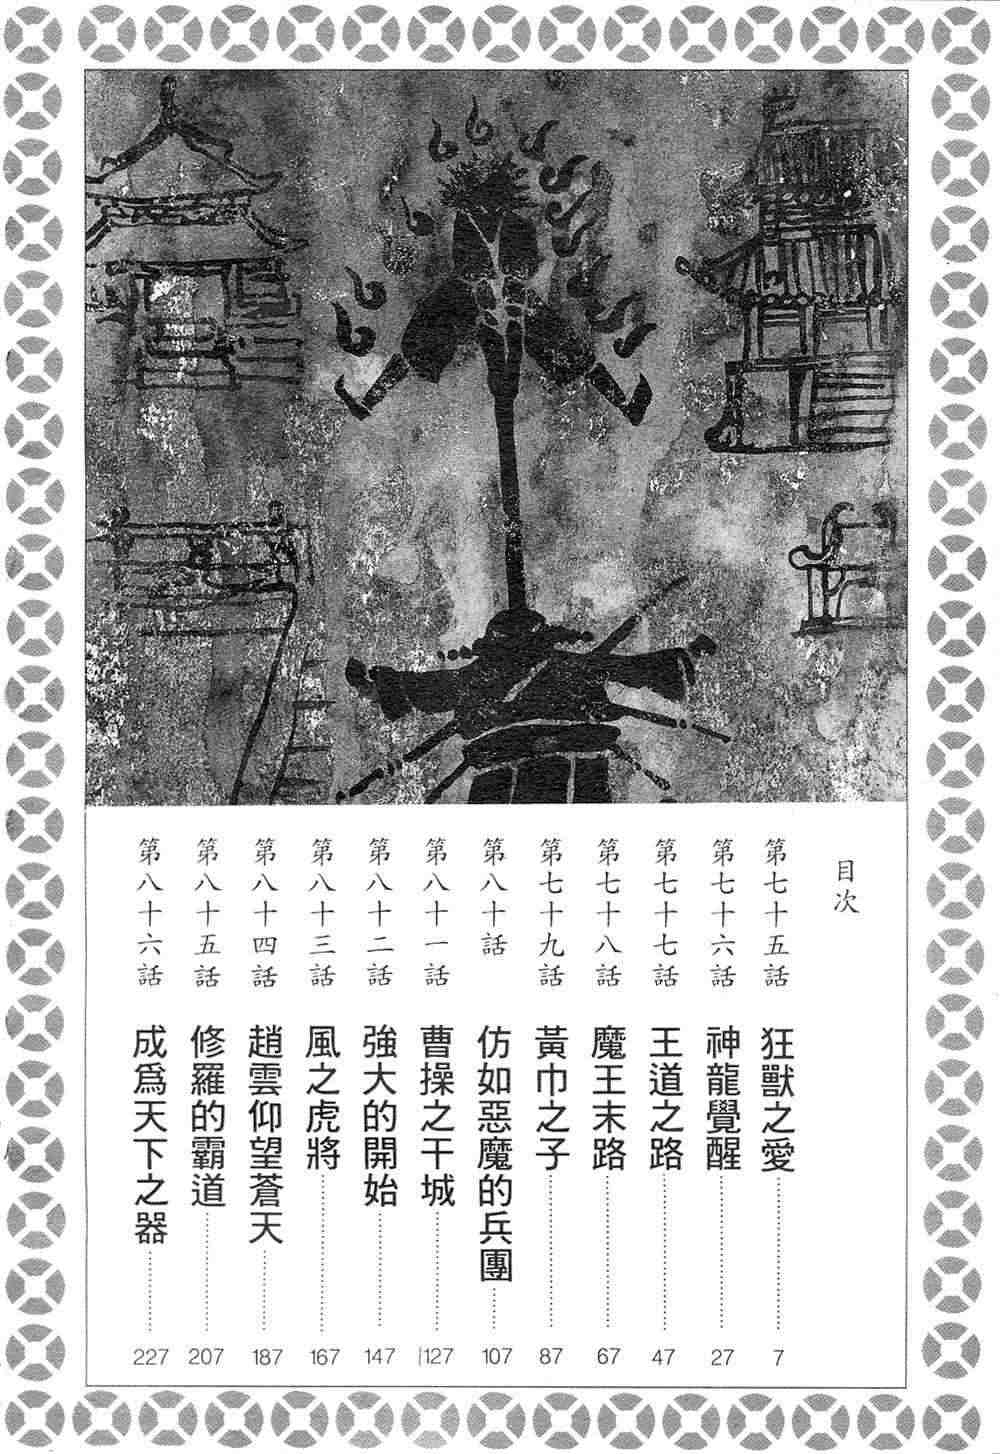 目次
第七十五話 狂獸之愛 7
第七十六話 神龍覺醒 27
第七十七話 王道之路 47
第七十八話 魔王末路 67
第七十九話 黃巾之子 87
第八十話 仿如惡魔的兵團 107
第八十一話 曹操之干城 127
第八十二話 強大的開始 147
第八十三話 風之虎將 167
第八十四話 趙雲仰望蒼天 187
第八十五話 修羅的霸道 207
第八十六話 成爲天下之器 227